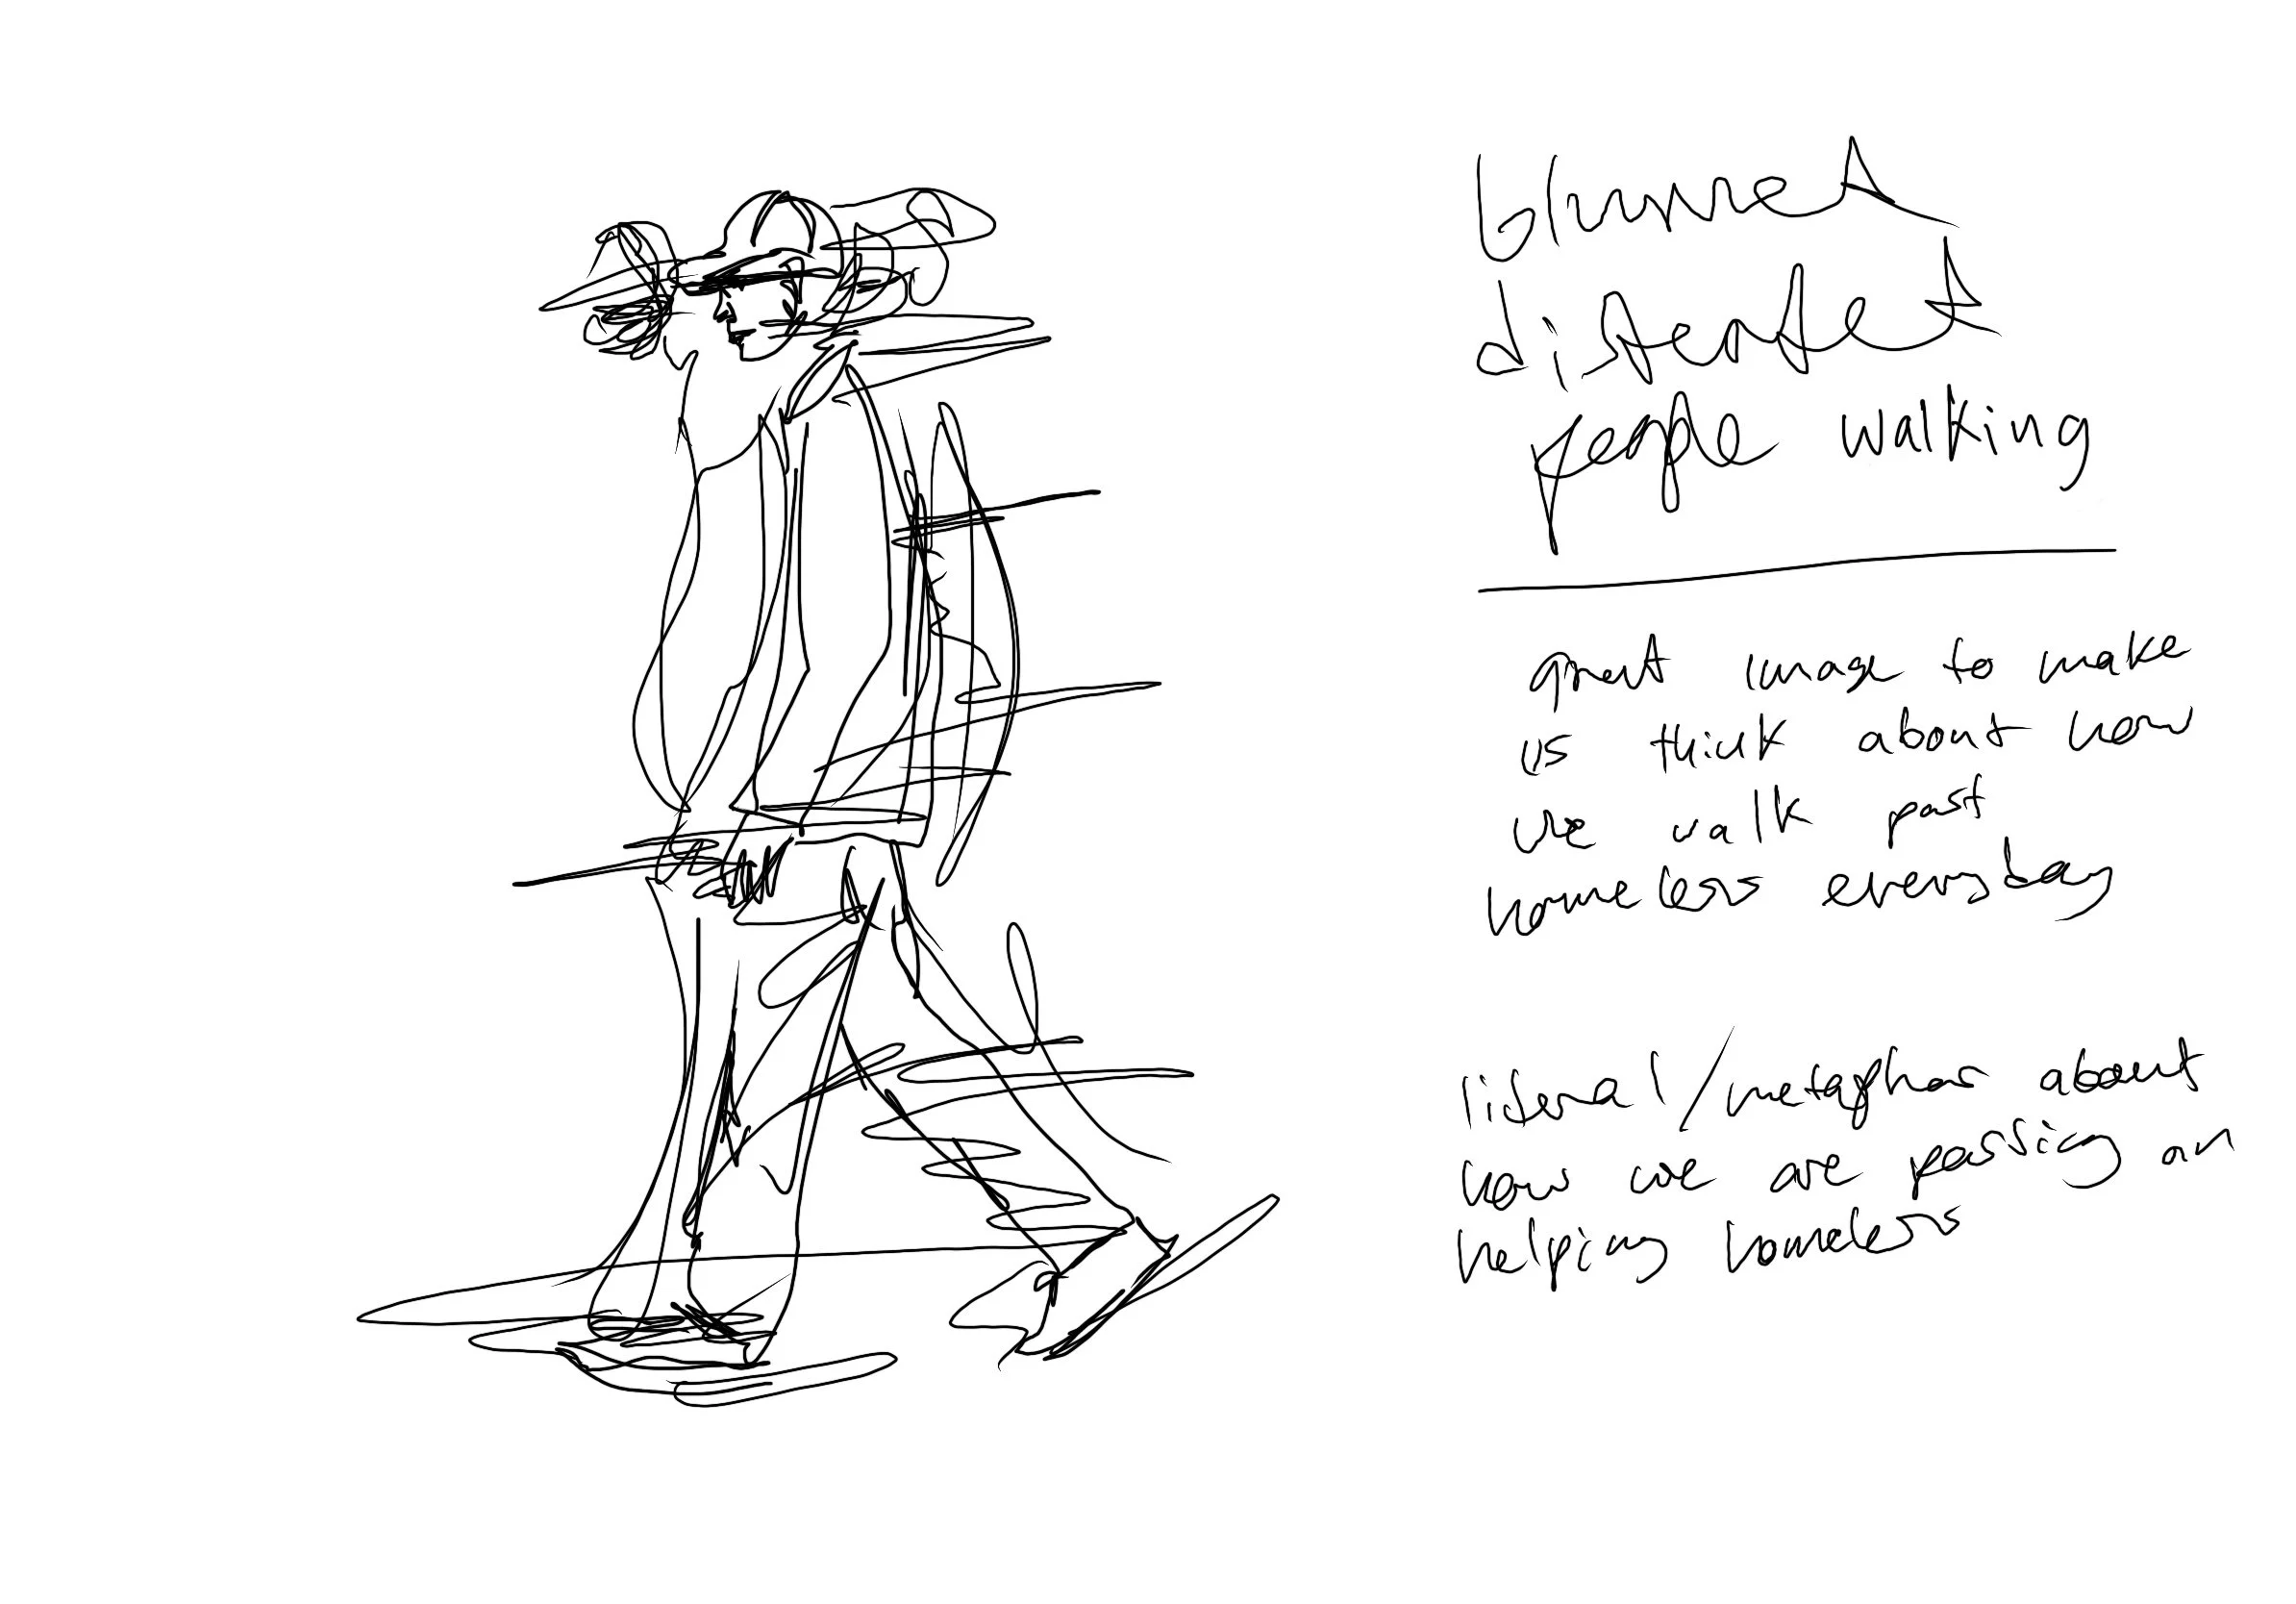 blurred
distorted
people walking
great image to make
us think about how
we walk past
homeless everyday
literal/metaphor about
how we are passing on
helping homeless